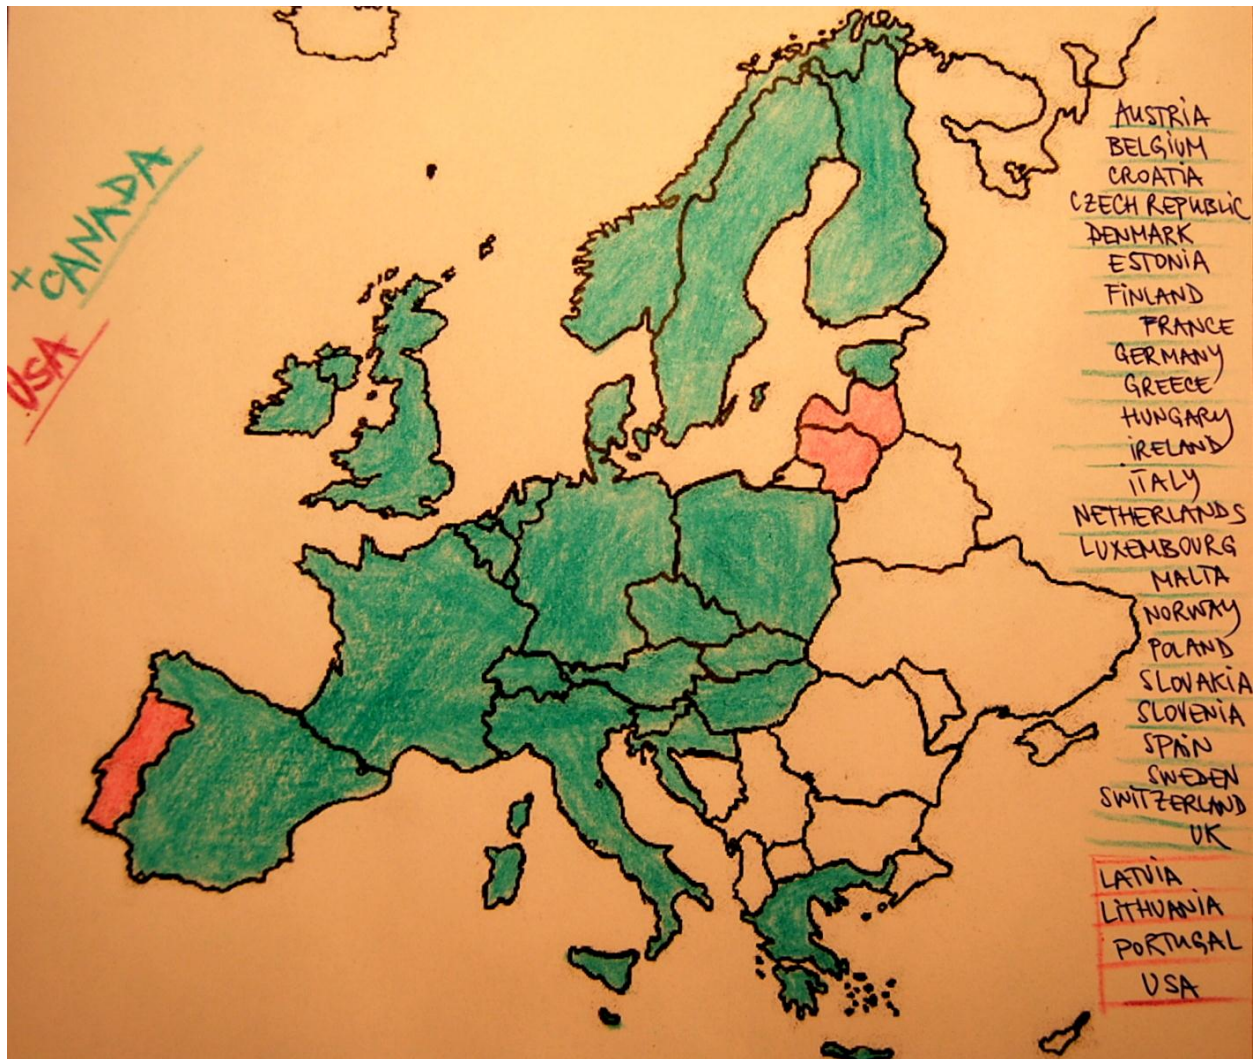 + CANADA
USA
AUSTRIA
BELGIUM
CROATIA
CZECH REPUBLIC
DENMARK
ESTONIA
FINLAND
FRANCE
GERMANY
GREECE
HUNGARY
IRELAND
ITALY
NETHERLANDS
LUXEMBOURG
MALTA
NORWAY
POLAND
SLOVAKIA
SLOVENIA
SPAIN
SWEDEN
SWITZERLAND
UK
LATVIA
LITHUANIA
PORTUGAL
USA